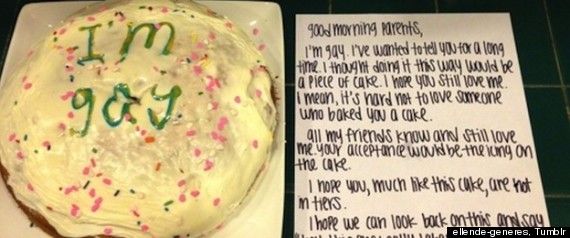 I'm
gay
good morning parents,
I'm gay. I've wanted to tell you for a long
time. I thought doing it this way would be
a piece of cake. I hope you still love me.
I mean, it's hard not to love someone
who baked you a cake.
all my friends know and still love
me. your acceptance would be the icing on
the cake.
I hope you, much like this cake, are not
in tiers.
I hope we can look back on this and say
ellende-generes, Tumblr